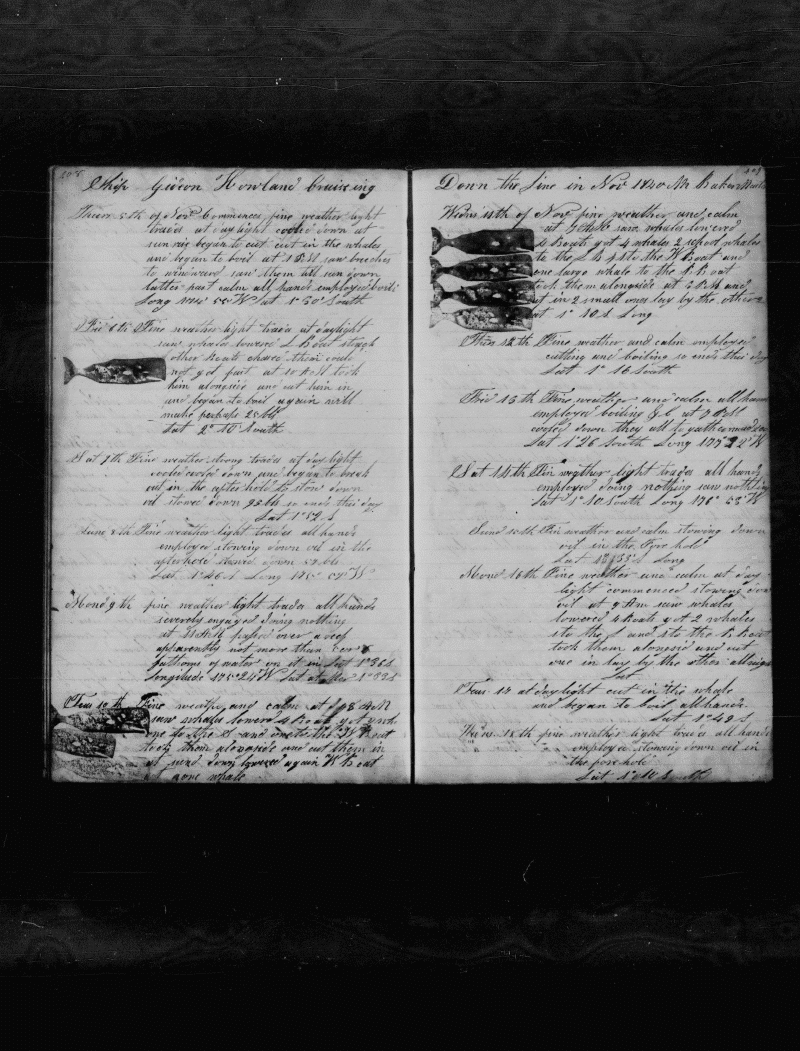 Ship Gideon Howland Cruising
Thurs 5th of Nov Commences fine weather light
trades at day light cooled down at
sun rise began to cut in the whales
and began to boil at 1 PM saw breeches
to windward saw them till sun down
latter part calm all hands employed boili
Long 174 55 W Lat 1° 50' South
Frid 6th Fine weather light trades at daylight
saw whales lowered L Boat struck
other boats chased their could
not get fast at 10 AM took
him alongside and cut him in
and began to boil again will
make perhaps 25 bbls
Lat 2° 10 South
Sat 7th Fine weather strong trades at day light
cooled down and began to break
out in the after hold to stow down
oil stowed down 95 bbls so ends this day
Lat 1° 52 S
Sund 8th Fine weather light trades all hands
employed stowing down oil in the
afterhold stowed down 57 bbls
Lat 1° 46 S Long 175° 07 W
Mond 9th fine weather light trades all hands
severely engaged doing nothing
at 11 AM passed over a reef
apparently not more than
fathoms of water on it in Lat 1° 36 S
Longitude 175° 24 W Lat at Mer 1° 33 S
Tues 10th Fine weather and calm at AM
saw whales lowered 4 Boats got 2 wh
one to the S and one to the W Boat
took them alongside and cut them in
at sun down lowered again W Boat
got one whale
Down the Line in Nov 1840 Mr Baker
Weds 11th of Nov fine weather and calm
at 7 AM saw whales lowered
4 Boats got 4 whales 2 whales
to the L B 1 to the W Boat and
one large whale to the B Boat
took them alongside at PM and
cut in 2 small ones lay by the other 2
Lat 1° 10 S Long
Thurs 12th Fine weather and calm employed
cutting and boiling so ends this day
Lat 1° 16 South
Frid 13th Fine weather and calm all hands
employed boiling &c at 7 PM
cooled down they all to gather made
Lat 1° 26 South Long 175° 22 W
Sat 14th Fin weather light trades all hands
employed doing nothing saw nothing
Lat 1° 10 South Long 176° 53' W
Sund 15th Fin weather and calm stowing down
oil in the Fore hold
Lat 1° 33 S Long
Mond 16th Fine weather and calm at day
light commenced stowing down
oil at 9 Am saw whales
lowered 4 Boats got 2 whales
1 to the L and 1 to the B Boat
took them alongside and cut
one in lay by the other all night
Lat
Tues 17 at daylight cut in the whale
and began to boil all hands
Lat 1° 42 S
Weds 18th fine weather light trades all hands
employed stowing down oil in
the fore hold
Lat 1° 10 S